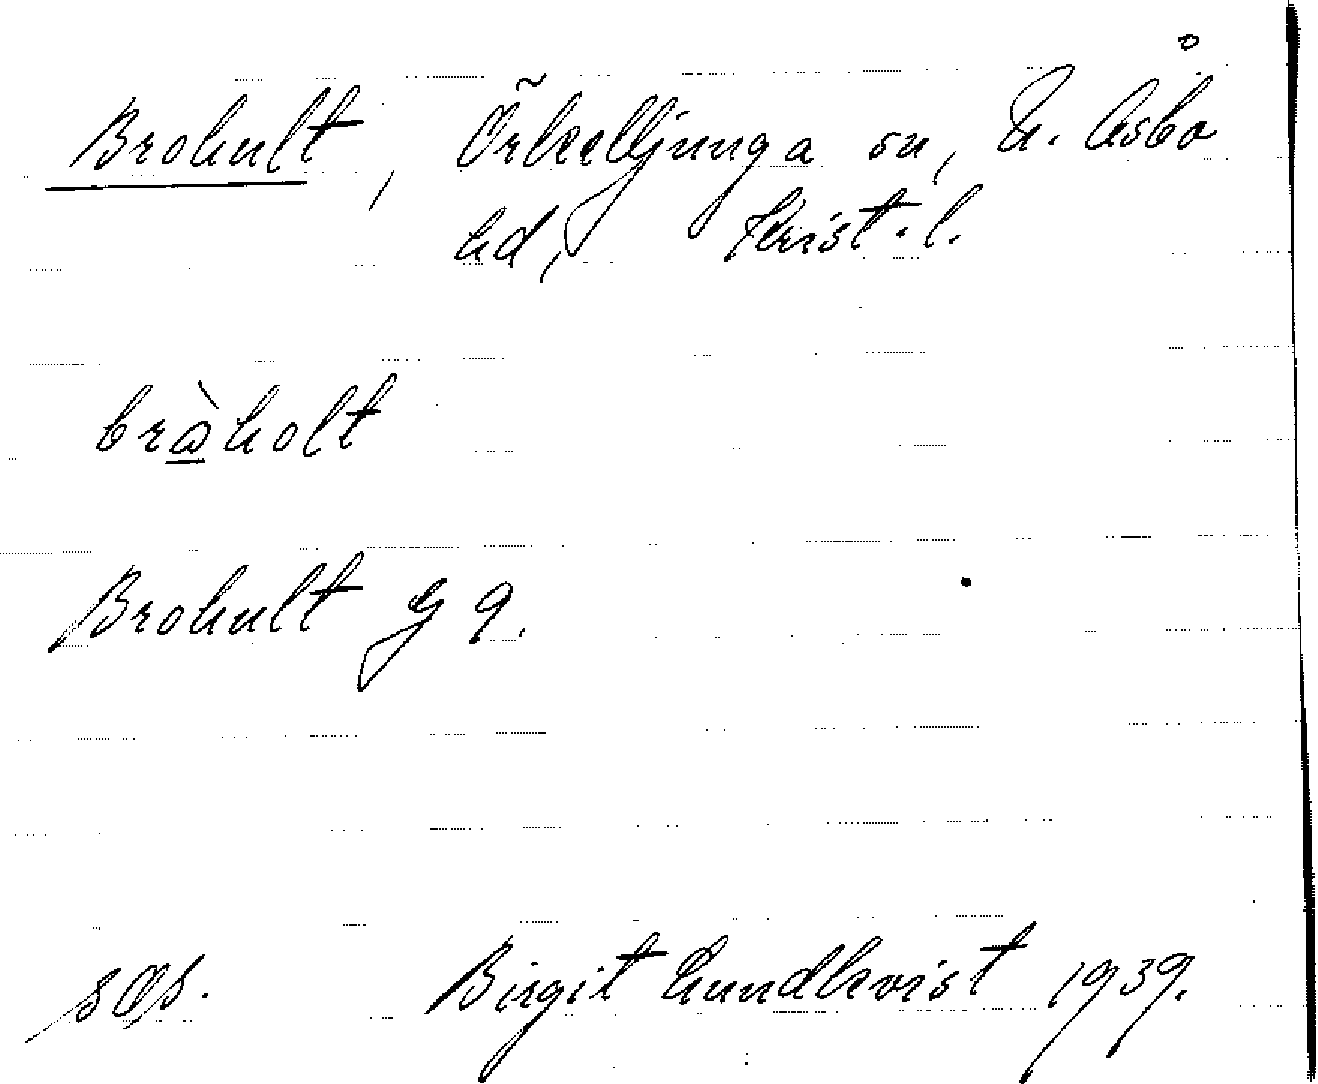 Brohult, Örkelljunga sn, N. Åsbo
hd, Krist. l.
bràholt
Brohult G 9.
Birgit Lundkvist 1939.